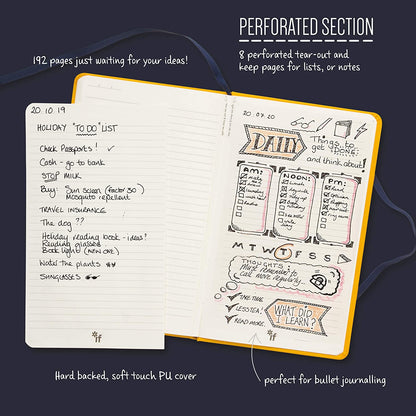 PERFORATED SECTION
192 pages just waiting for your ideas!
8 perforated tear-out and
keep pages for lists, or notes
20.10.19
HOLIDAY "TO DO" LIST
Check Passports! ✓
Cash - go to bank
STOP MILK
Buy: Sun screen (factor 30)
Mosquito repellent
TRAVEL INSURANCE
The dog ??
Holiday reading book - ideas!
Reading glasses
Book light (NEW ONE)
Water the plants
SUNGLASSES
if
20.07.20
DAILY
Things to
get DONE
and think about!
AM:
NOON:
PM:
M T W T F S S
THOUGHTS:
Must remember to
call more regularly...
LESS TEA!
READ MORE.
WHAT DID
I LEARN?
if
Hard backed, soft touch PU cover
perfect for bullet journalling